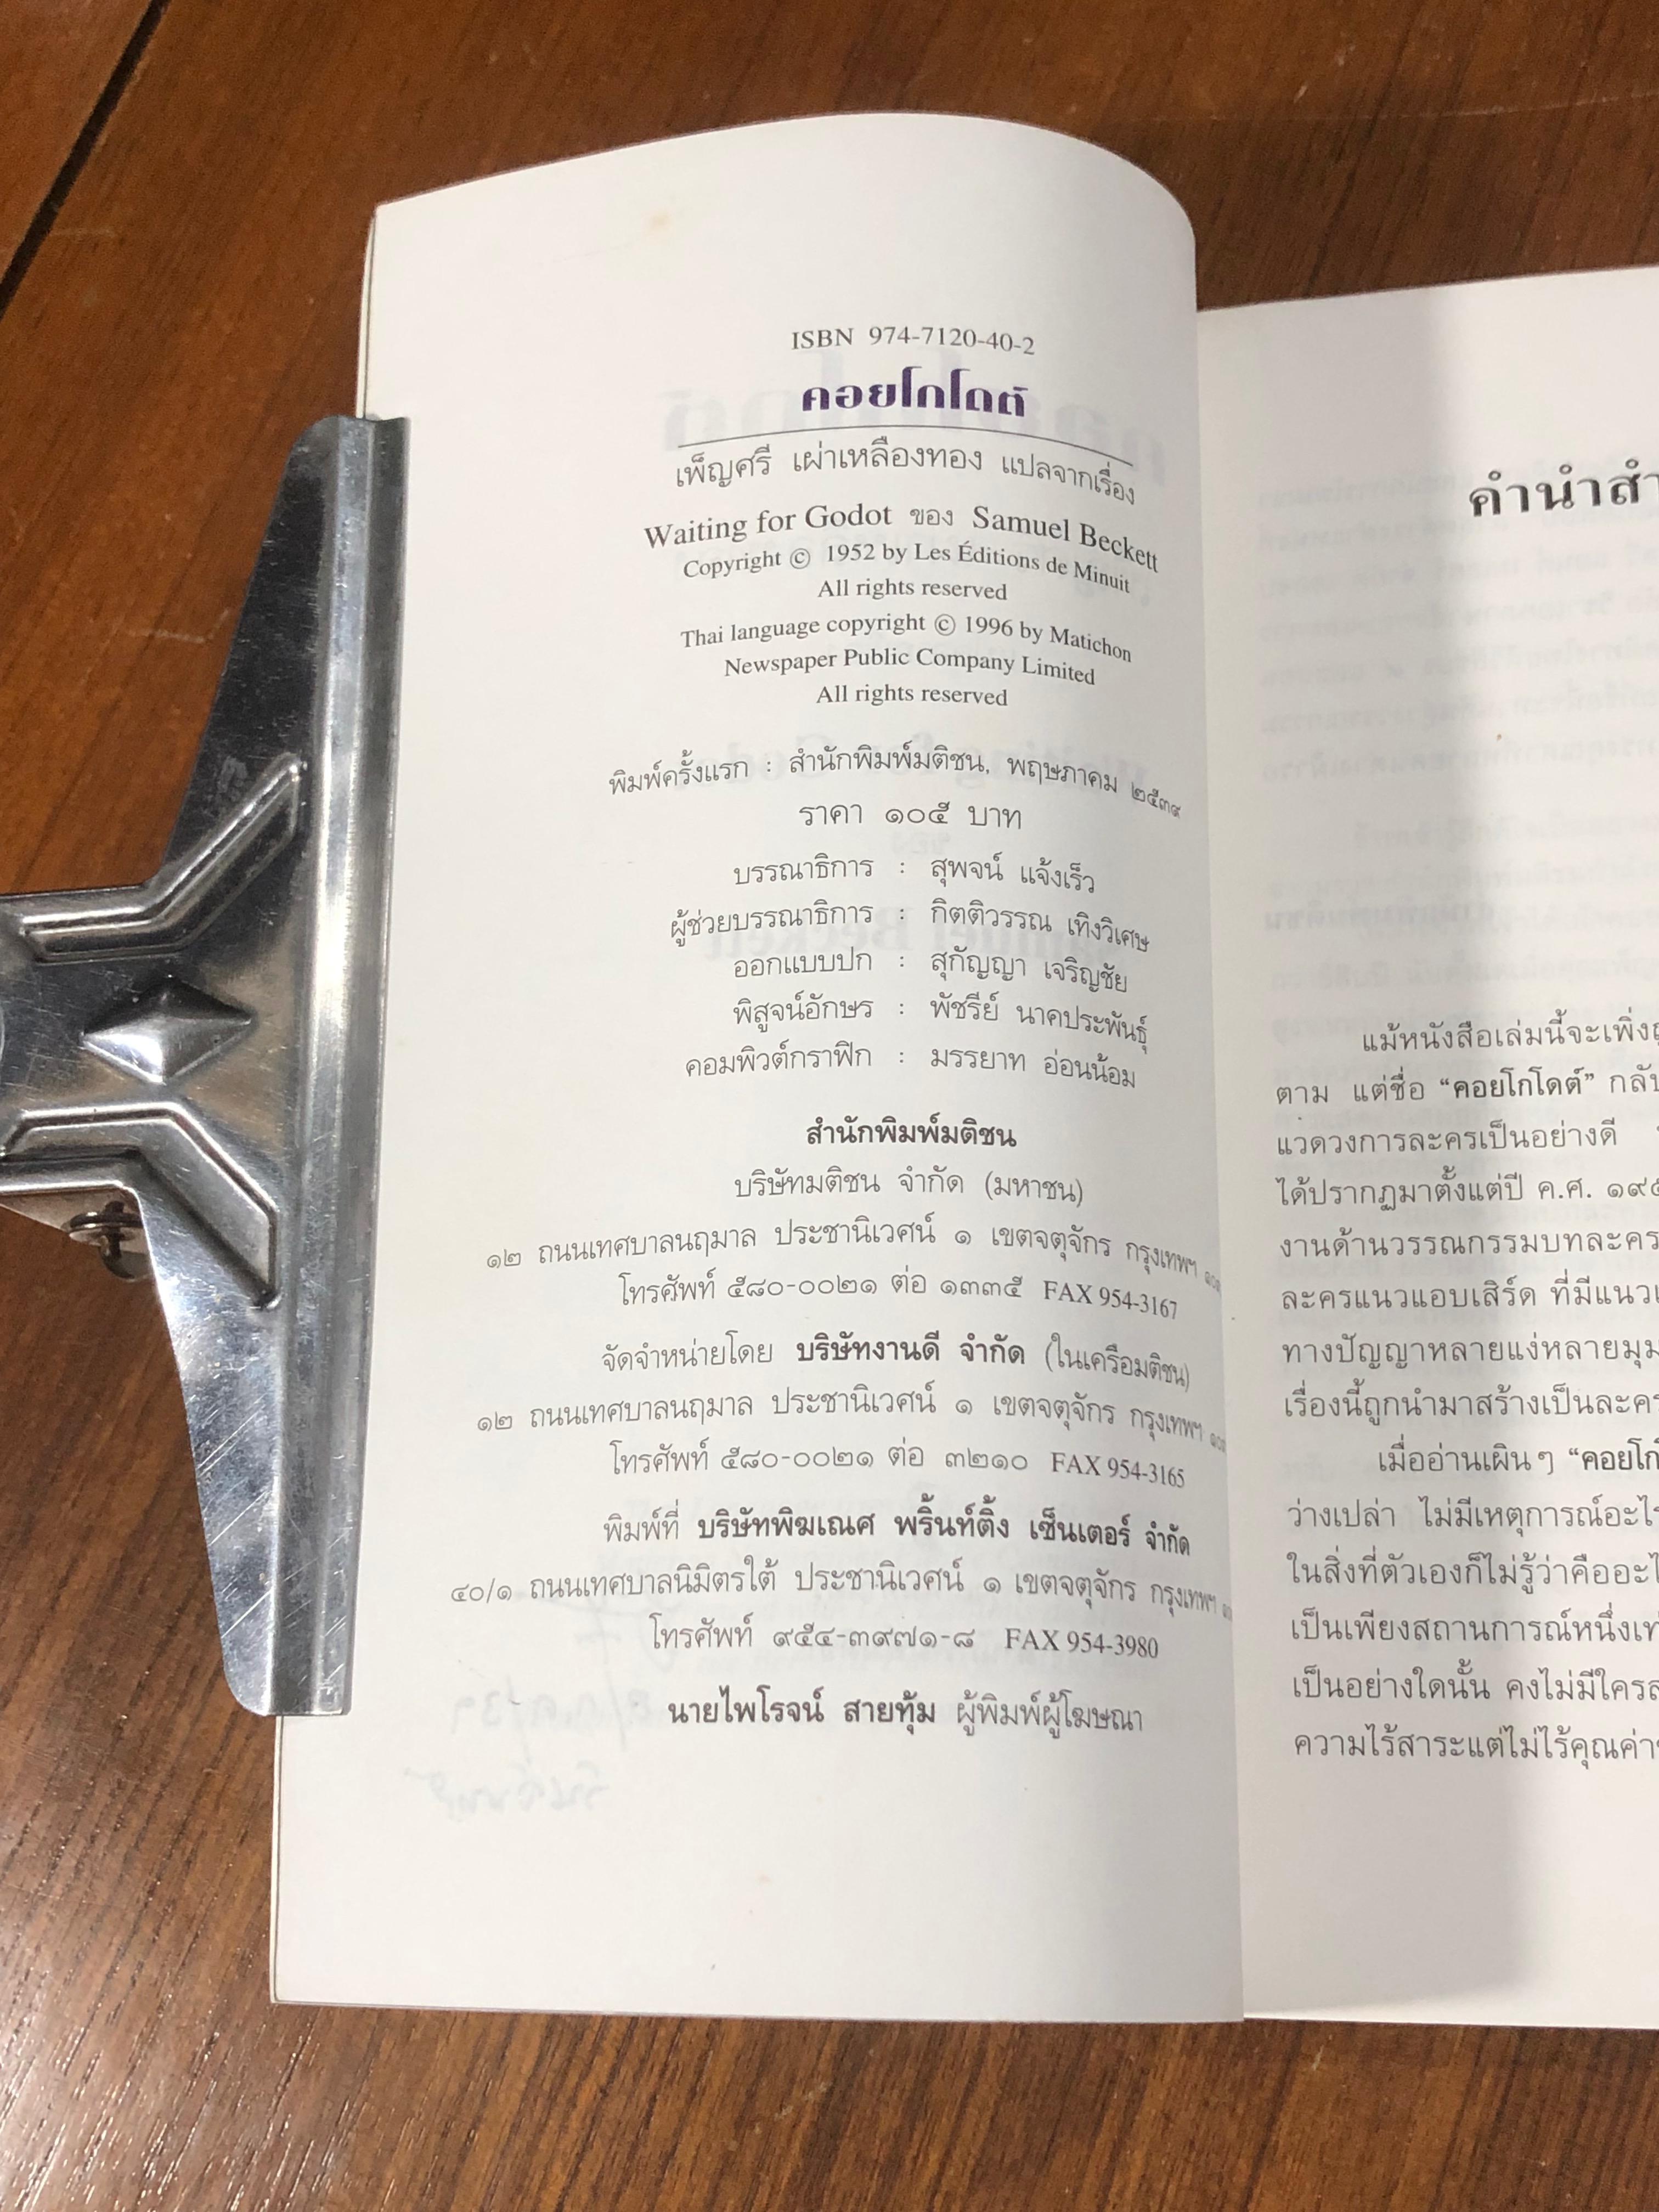 ISBN 974-7120-40-2
คอยโกโดต์
เพ็ญศรี เผ่าเหลืองทอง แปลจากเรื่อง
Waiting for Godot ของ Samuel Beckett
Copyright © 1952 by Les Éditions de Minuit
All rights reserved
Thai language copyright © 1996 by Matichon
Newspaper Public Company Limited
All rights reserved
พิมพ์ครั้งแรก : สำนักพิมพ์มติชน, พฤษภาคม ๒๕๓๙
ราคา ๑๐๕ บาท
บรรณาธิการ : สุพจน์ แจ้งเร็ว
ผู้ช่วยบรรณาธิการ : กิตติวรรณ เทิงวิเศษ
ออกแบบปก : สุกัญญา เจริญชัย
พิสูจน์อักษร : พัชรีย์ นาคประพันธุ์
คอมพิวต์กราฟิก : มรรยาท อ่อนน้อม
สำนักพิมพ์มติชน
บริษัทมติชน จำกัด (มหาชน)
๑๒ ถนนเทศบาลนฤมาล ประชานิเวศน์ ๑ เขตจตุจักร กรุงเทพฯ
โทรศัพท์ ๕๘๐-๐๐๒๑ ต่อ ๑๓๓๕ FAX 954-3167
จัดจำหน่ายโดย บริษัทงานดี จำกัด (ในเครือมติชน)
๑๒ ถนนเทศบาลนฤมาล ประชานิเวศน์ ๑ เขตจตุจักร กรุงเทพฯ
โทรศัพท์ ๕๘๐-๐๐๒๑ ต่อ ๓๒๑๐ FAX 954-3165
พิมพ์ที่ บริษัทพิฆเณศ พริ้นท์ติ้ง เซ็นเตอร์ จำกัด
๔๐/๑ ถนนเทศบาลนิมิตรใต้ ประชานิเวศน์ ๑ เขตจตุจักร กรุงเทพฯ
โทรศัพท์ ๙๕๔-๓๙๗๑-๘ FAX 954-3980
นายไพโรจน์ สายทุ้ม ผู้พิมพ์ผู้โฆษณา
คำนำสำ
แม้หนังสือเล่มนี้จะเพิ่ง
ตาม แต่ชื่อ “คอยโกโดต์” กลับ
แวดวงการละครเป็นอย่างดี
ได้ปรากฏมาตั้งแต่ปี ค.ศ. ๑๙๕
งานด้านวรรณกรรมบทละคร
ละครแนวแอบเสิร์ด ที่มีแนว
ทางปัญญาหลายแง่หลายมุม
เรื่องนี้ถูกนำมาสร้างเป็นละคร
เมื่ออ่านเผินๆ “คอยโก
ว่างเปล่า ไม่มีเหตุการณ์อะไร
ในสิ่งที่ตัวเองก็ไม่รู้ว่าคืออะไ
เป็นเพียงสถานการณ์หนึ่งเท่
เป็นอย่างใดนั้น คงไม่มีใคร
ความไร้สาระแต่ไม่ไร้คุณค่า